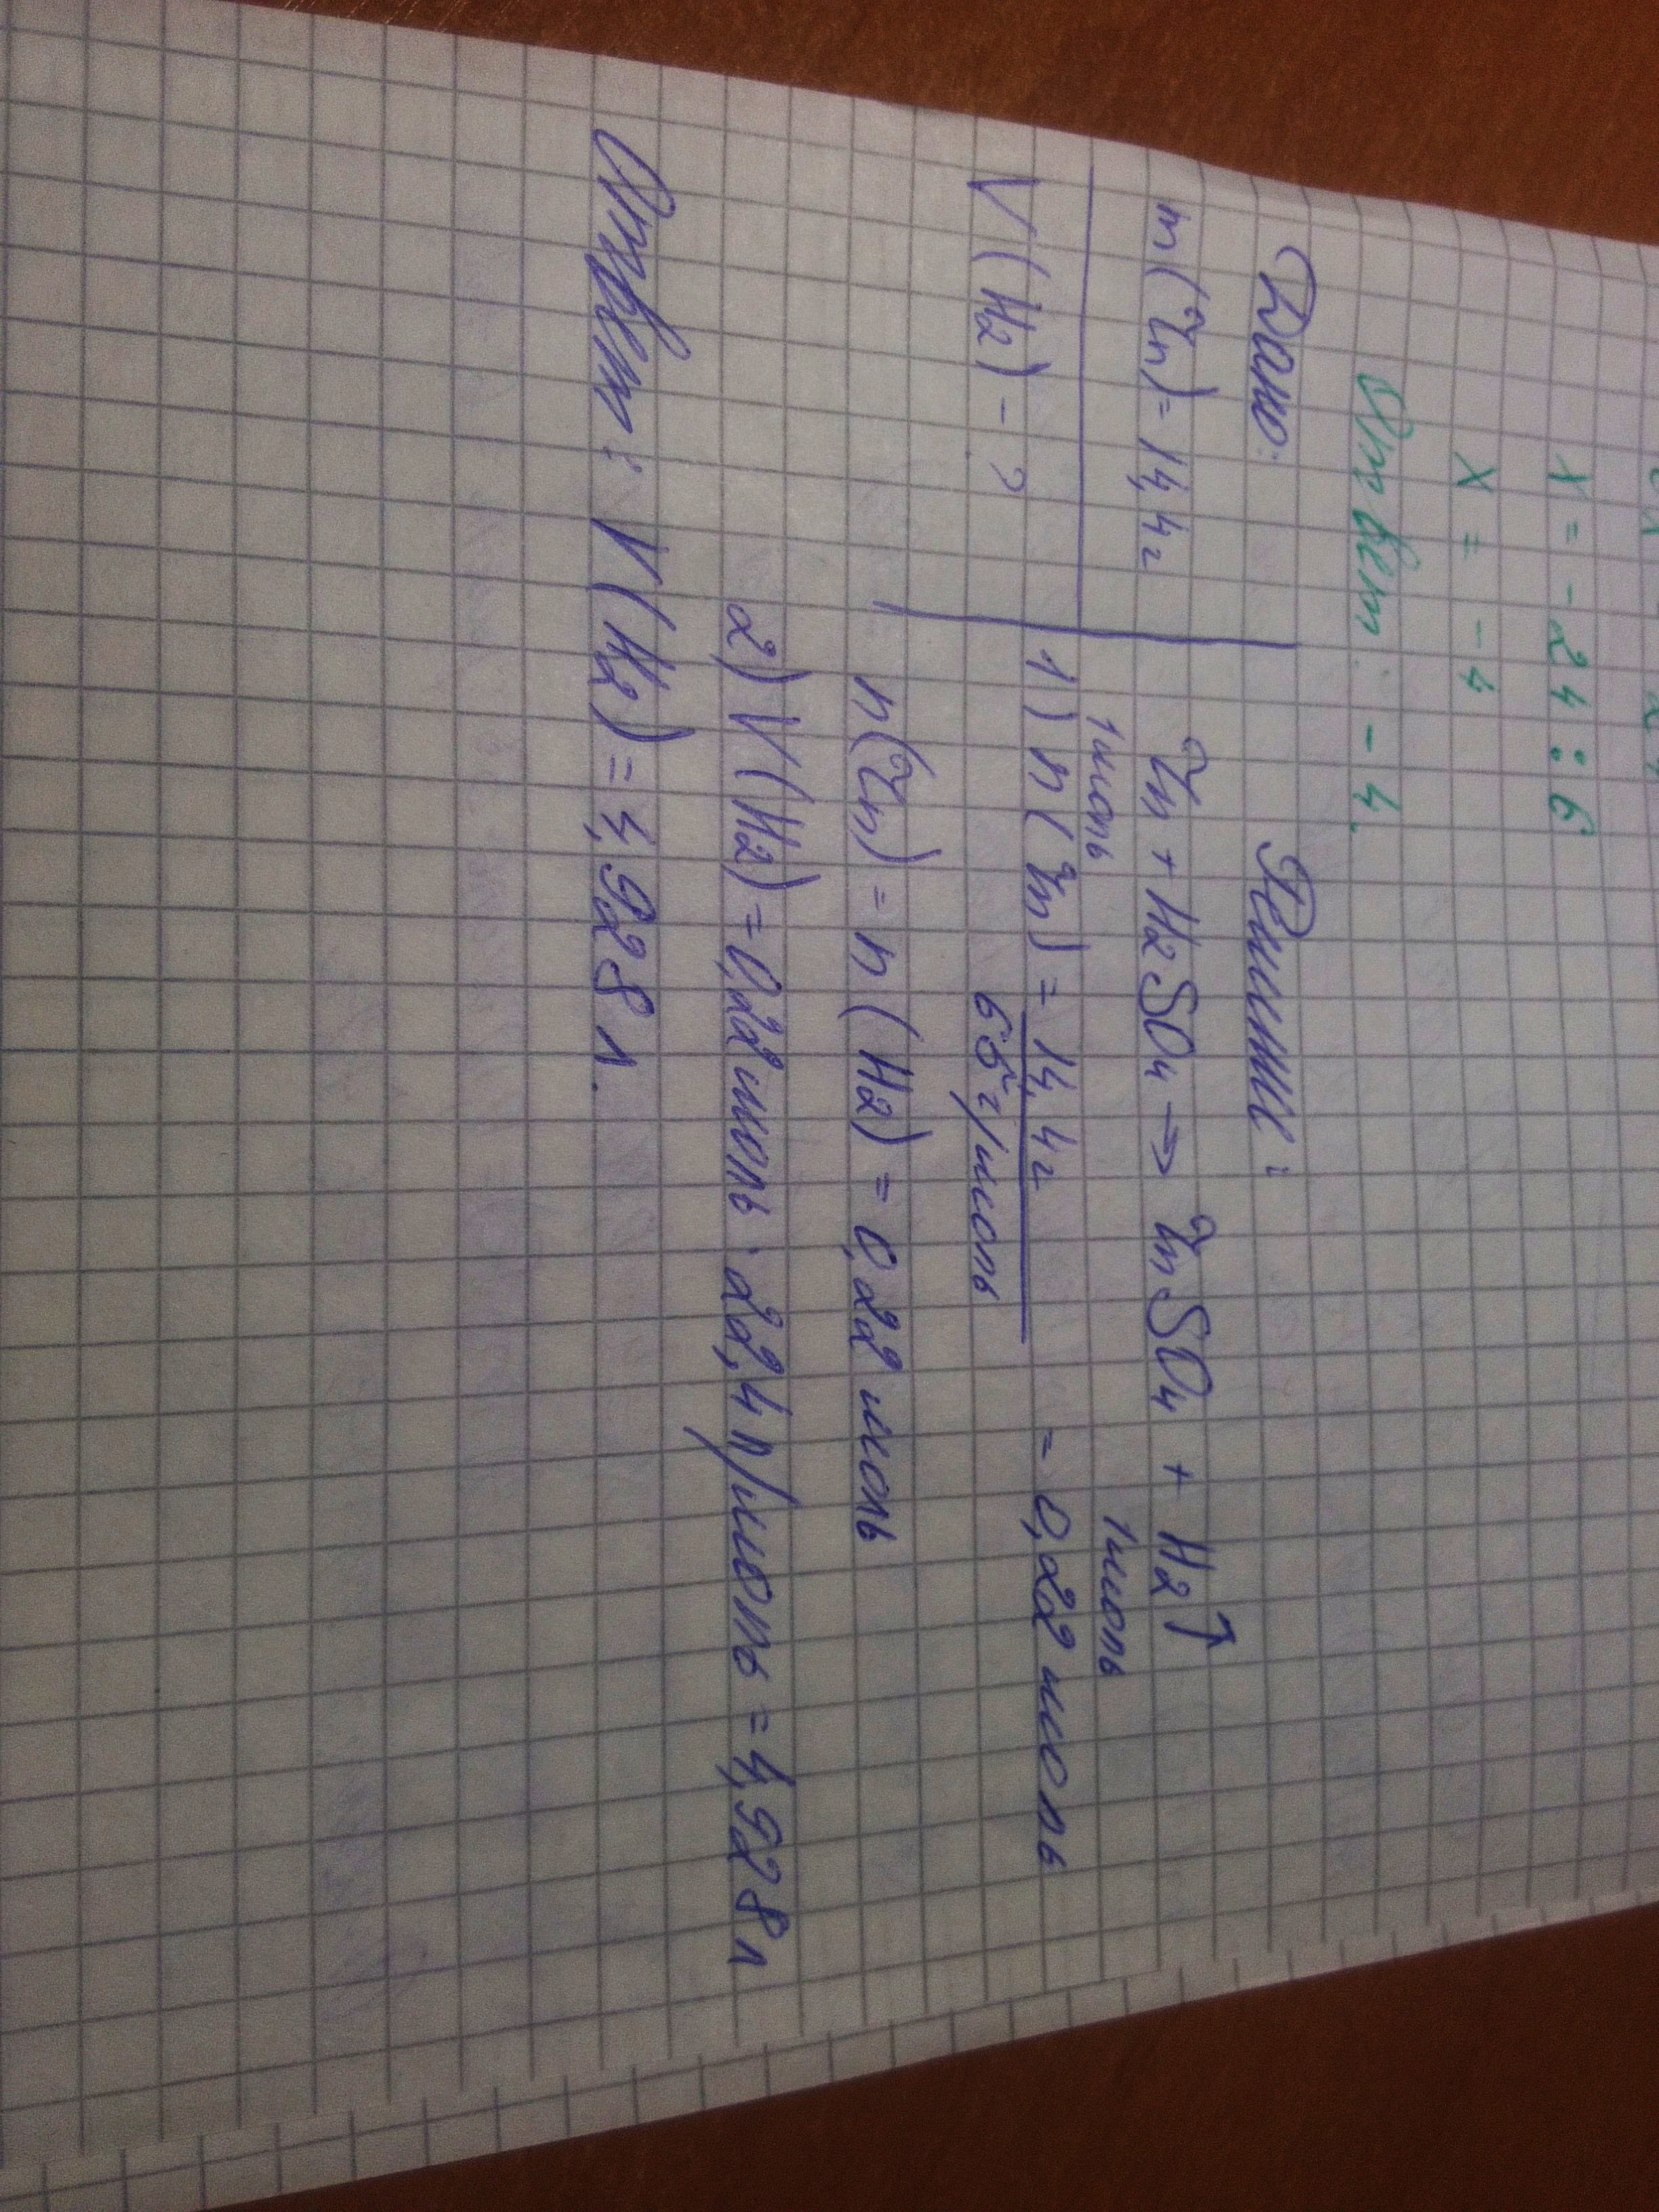 x = -24 : 6
x = -4
Ответ: -4.
Дано:
m(Zn) = 14,4г
V(H2) - ?
Решение:
Zn + H2SO4 → ZnSO4 + H2↑
1моль 1моль
1) n(Zn) = 14,4г / 65г/моль = 0,22 моль
n(Zn) = n(H2) = 0,22 моль
2) V(H2) = 0,22моль · 22,4л/моль = 4,928л
Ответ: V(H2) = 4,928л.